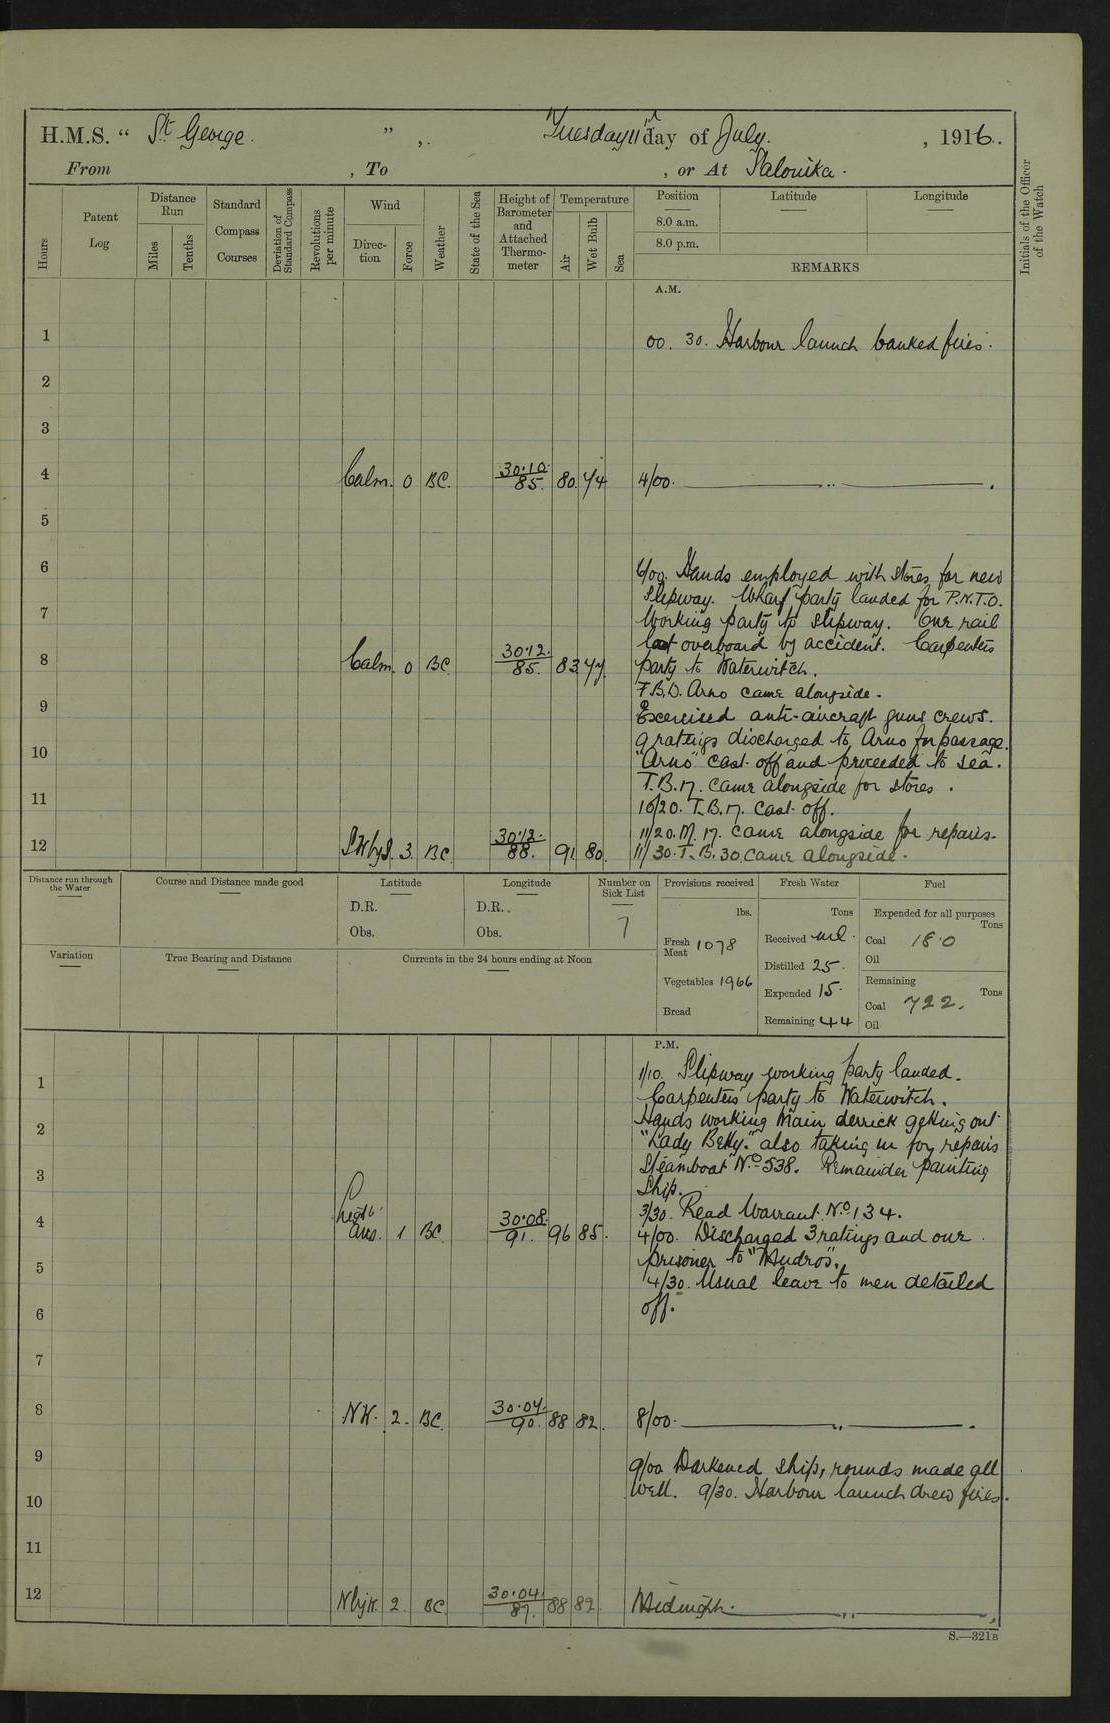 H.M.S. “ St George. ” , Tuesday 11th day of July. , 1916.
From , To , or At Salonika.
Hours
Patent Log
Distance Run
Miles
Tenths
Standard Compass Courses
Deviation of Standard Compass
Revolutions per minute
Wind
Direc- tion
Force
Weather
State of the Sea
Height of Barometer and Attached Thermo- meter
Temperature
Air
Wet Bulb
Sea
Position
8.0 a.m.
8.0 p.m.
Latitude
Longitude
REMARKS
Initials of the Officer of the Watch
A.M.
1 00. 30. Harbour launch banked fires.
2
3
4 Calm. 0 BC. 30.10. 85. 80. 74 4/00. ——— .. ——— .
5
6 6/00. Hands employed with stores for new
slipway. Wharf party landed for P.N.T.O.
7 Working party to slipway. One rail
lost overboard by accident. Carpenters
8 Calm. 0 BC 30.12. 85. 83 77. party to Waterwitch.
T.B.D. Arno came alongside.
9 Exercised anti-aircraft guns crews.
9 ratings discharged to Arno for passage.
10 "Arno" cast off and proceeded to sea.
T.B. 17. came alongside for stores.
11 10/20. T.B. 17. cast off.
11/20. M. 17. came alongside for repairs.
12 SWbyS. 3. BC 30.12. 88. 91 80. 11/30. T.B. 30. came alongside.
Distance run through the Water
Course and Distance made good
Latitude
D.R.
Obs.
Longitude
D.R.
Obs.
Number on Sick List
7
Variation
True Bearing and Distance
Currents in the 24 hours ending at Noon
Provisions received
lbs.
Fresh Meat 1078
Vegetables 1966
Bread
Fresh Water
Tons
Received nil.
Distilled 25.
Expended 15.
Remaining 44
Fuel
Expended for all purposes
Tons
Coal 18.0
Oil
Remaining
Tons
Coal 722.
Oil
P.M.
1 1/10. Slipway working party landed.
Carpenters party to Waterwitch.
2 Hands working Main derrick getting out
"Lady Betty." also taking in for repairs
3 Steamboat No. 538. Remainder painting
ship.
3/30. Read Warrant No. 134.
4 Light airs. 1 BC. 30.08. 91. 96 85. 4/00. Discharged 3 ratings and one
5 prisoner to "Mudros".
4/30. Usual leave to men detailed
6 off.
7
8 NW. 2. BC. 30.04. 90. 88 82. 8/00. ——— .. ——— .
9 9/00 Darkened ship, rounds made all
well. 9/30. Harbour launch drew fires.
10
11
12 NbyW. 2. BC 30.04. 87. 88 82. Midnight. ——— .. ——— .
S.—321B